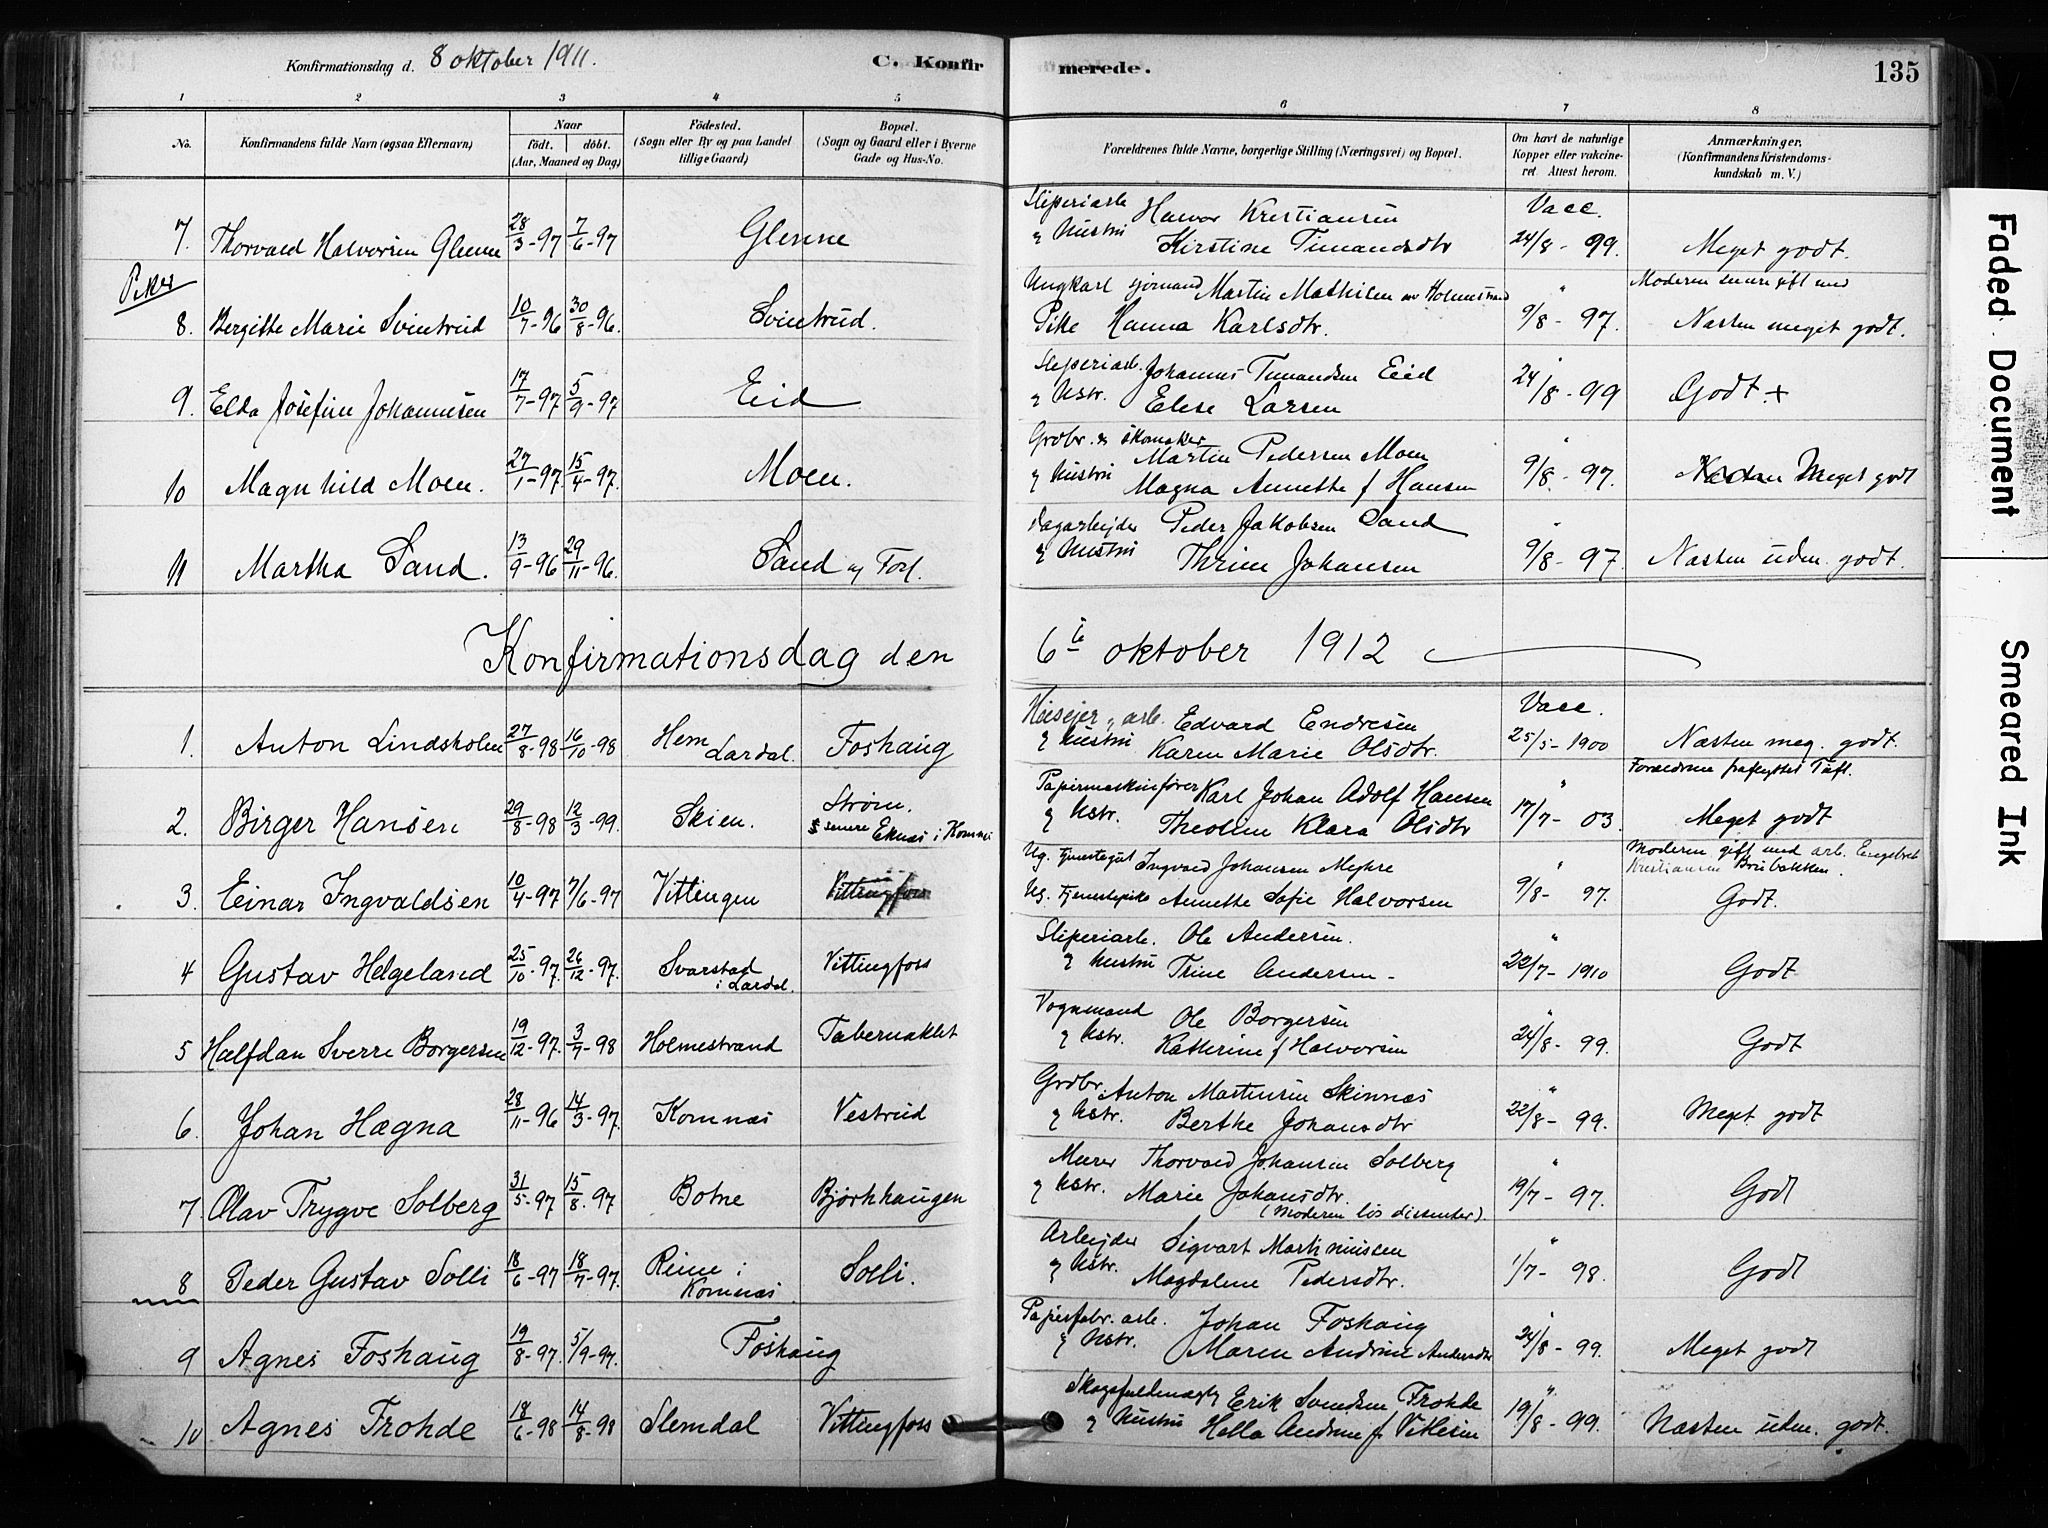 Konfirmationsdag d. 8 oktober 1911. C. Konfirmerede. 135
1 2 3 4 5 6 7 8
No. Konfirmandens fulde Navn (ogsaa Efternavn) Naar født. døbt. (Aar, Maaned og Dag) Fødested. (Sogn eller By og paa Landet tillige Gaard) Bopæl. (Sogn og Gaard eller i Byerne Gade og Hus-No. Forældrenes fulde Navne, borgerlige Stilling (Næringsvei) og Bopæl. Om havt de naturlige Kopper eller vakcineret. Attest herom. Anmærkninger. (Konfirmandens Kristendomskundskab m. V.)
Sliperiarb Halvor Kristiansen Vacc.
7. Thorvald Halvorsen Glenne 28/3-97 7/6-97 Glenne & Hustru Kirstine Timandsdtr 24/8-99. Meget godt.
Piker
Ungkarl sjømand Martin Mathisen av Holmestrand " Moderen senere gift med
8. Bergitte Marie Svintrud 10/7-96 30/8-96. Svintrud. Pike Hanna Karlsdtr. 9/8-97. Næsten meget godt.
Sliperiarb. Johannes Timandsen Eid "
9. Elda Josefine Johannesen 17/7-97 5/9-97 Eid & Hstr. Elese Larsen 24/8-99 Godt +
Grdbr. og skomaker Martin Pedersen Moen "
10 Magnhild Moen. 27/1-97. 15/4-97. Moen. & Hustru Magna Annette f Hansen 9/8-97. Næsten Meget godt
Dagarbejder Peder Jakobsen Sand "
11 Martha Sand. 13/9-96 29/11-96. Sand og Torl. & Hustru Thrine Johansen 9/8-97. Næsten uden. godt.
Konfirmationsdag den 6te oktober 1912
Husejer, arb. Edvard Endresen Vacc.
1. Anton Lindsholm 27/8-98 16/10-98 Hem Lardal. Foshaug & Hustru Karen Marie Olsdtr. 25/5-1900 Næsten meg. godt.
Papirmaskinfører Karl Johan Adolf Hansen " Forældrene fraflyttet
2. Birger Hansen 29/8-98 12/3-99. Skien. Strøm. senere Eknes i Komnes & Hstr. Theoline Klara Olsdtr 17/7-03. Meget godt
Ug. tjenestegut Ingvald Johansen Meghre " Moderen gift med arb. Engebret Kristiansen Brubakken.
3. Einar Ingvaldsen 10/4-97 7/6-97 Vittingen Vittingfoss Ug. Tjenestepike Annette Sofie Halvorsen 9/8-97. Godt.
Sliperiarb. Ole Andersen. "
4 Gustav Helgeland 25/10-97. 26/12-97. Svarstad i Lardal. Vittingfoss & Hustru Trine Andersen- 22/7-1910 Godt
Vognmand Ole Borgersen "
5 Halfdan Sverre Borgersen 19/12-97. 3/7-98 Holmestrand Tabernaklet & Hstr. Kathrine f Halvorsen 24/8-99. Godt
Grdbr. Anton Martinsen Skinnes "
6. Johan Hagna 28/11-96 14/3-97. Komnes Vestrud & Hstr. Berthe Johansdtr 22/8-99. Meget godt
Murer Thorvald Johansen Solberg "
7. Olav Trygve Solberg 31/5-97 15/8-97 Botne Bjørkhaugen & Hstr. Marie Johansdtr. (Moderen løs dissenter). 19/7-97. Godt
Arbejder Sigvart Martiniussen "
8 Peder Gustav Solli 18/6-97 18/7-97. Reine i Komnes. Solli. & Hstr. Magdalene Pedersdtr. 1/7-98. Godt
Papirfabr. arb. Johan Foshaug "
9 Agnes Foshaug 19/8-97. 5/9-97. Foshaug & Hstr. Maren Andrine Andersdtr 24/8-99. Meget godt
Skogsfuldmægtig Erik Svendsen Frohde "
10 Agnes Frohde 18/6-98 14/8-98 Slemdal Vittingfoss & Hustru Hella Andrine f. 19/8-99. Næsten uden. godt.
Faded Document
Smeared Ink